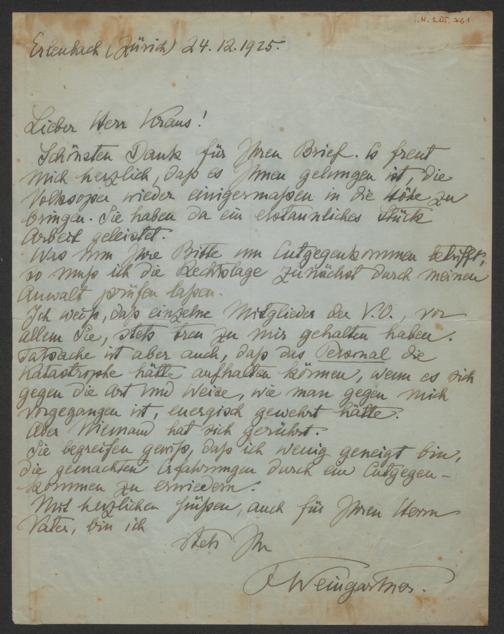 I.N. 205.261
Erlenbach (Zürich) 24.12.1925.
Lieber Herr Kraus!
Schönsten Dank für Ihren Brief. Es freut
mich herzlich, daß es Ihnen gelungen ist, die
Volksoper wieder einigermaßen in die Höhe zu
bringen. Sie haben da ein erstaunliches Stück
Arbeit geleistet.
Was nun Ihre Bitte um Entgegenkommen betrifft,
so muß ich die Rechtslage zunächst durch meinen
Anwalt prüfen laßen.
Ich weiß, daß einzelne Mitglieder der V.O., vor
allem Sie, stets treu zu mir gehalten haben.
Tatsache ist aber auch, daß das Personal die
Katastrophe hätte aufhalten können, wenn es sich
gegen die Art und Weise, wie man gegen mich
vorgegangen ist, energisch gewehrt hätte.
Aber Niemand hat sich gerührt.
Sie begreifen gewiß, daß ich wenig geneigt bin,
die gemachten Erfahrungen durch ein Entgegen-
kommen zu erwiedern.
Mit herzlichen Grüßen, auch für Ihren Herrn
Vater, bin ich
stets Ihr
FWeingartner.